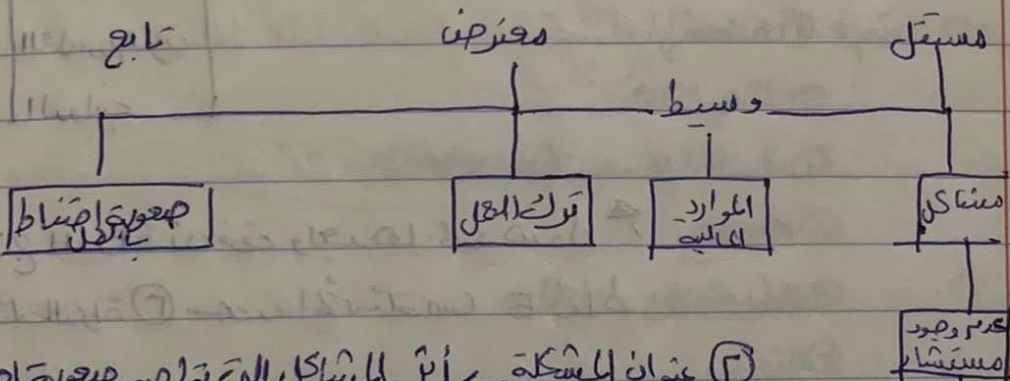 مستقل معترض تابع
وسيط
مشاكل
الموارد
المالية
ترك العمل
صعوبة احتفاظ
بالعمل
عدم وجود
مستشار
② عنوان المشكلة أثر المشاكل التي تواجه صعوبة